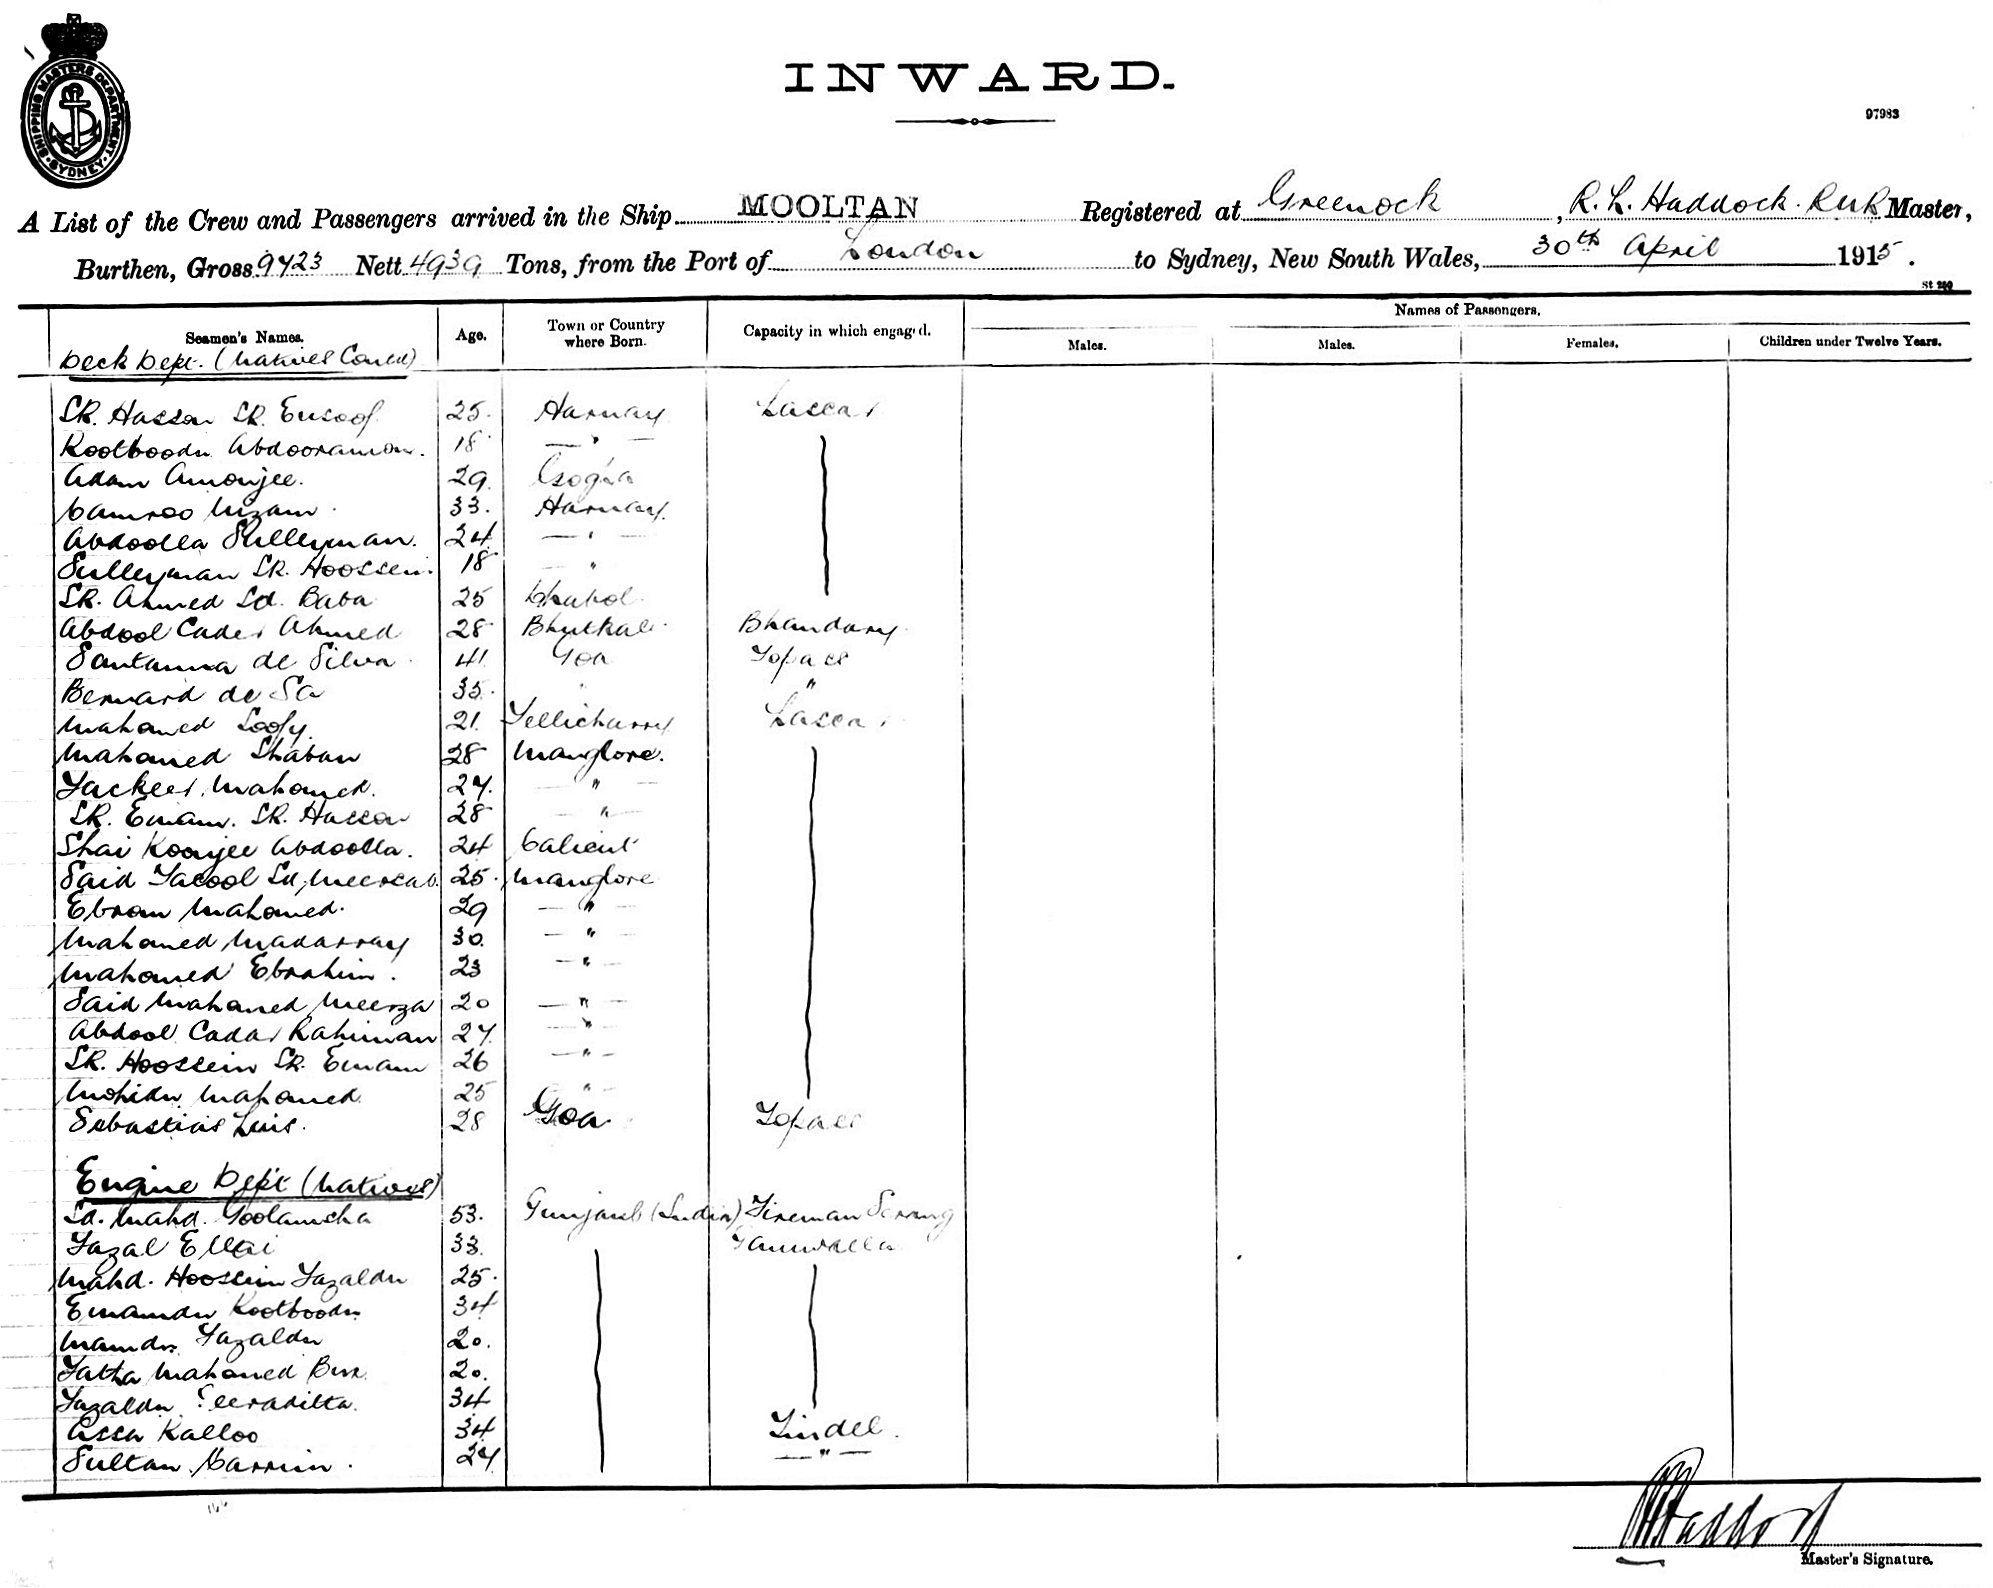 SHIPPING MASTERS DEPARTMENT · SYDNEY ·
INWARD.
97983
A List of the Crew and Passengers arrived in the Ship MOOLTAN Registered at Greenock, R. L. Haddock. RNR Master,
Burthen, Gross 9723 Nett 4939 Tons, from the Port of London to Sydney, New South Wales, 30th April 1915.
St 250
Seamen's Names. Age. Town or Country where Born. Capacity in which engaged. Names of Passengers.
Males. Males. Females. Children under Twelve Years.
Deck Dept. (Natives Contd)
Sk. Hassan Sk. Eusoof 25. Harnay Lascar
Kootboodn Abdooramon. 18 "
Adam Amonjee. 29.
Camroo Nizam. 33. Harnay.
Abdoolla Sulleyman. 24. "
Sulleyman Sk. Hoossein. 18 "
Sk. Ahmed Sd. Baba 25
Abdool Cader Ahmed 28 Bhutkal Bhandary
Santanna de Silva 41 Goa Topass
Bernard de Sa 35. " "
Mahomed Soofy. 21. Tellicharry Lascar
Mahomed Shaban 28 Manglore.
Fackeer Mahomed. 27. "
Sk. Emam. Sk. Hassan 28 "
Shai Koonjee Abdoolla. 24 Calicut
Said Yacool Sd. Meersab. 25. Manglore
Ebram Mahomed. 29 "
Mahomed Madarray 30. "
Mahomed Ebrahim. 23 "
Said Mahomed Meerza 20 "
Abdool Cadar Rahiman 27. "
Sk. Hoossein Sk. Emam 26 "
Mohidn Mahomed 25 "
Sebastiao Luis. 28 Goa Topass
Engine Dept (Natives)
Sd. Mahd. Goolamcha 53. Punjaub (India) Fireman Serang
Fazal Ellai 33.
Mahd. Hoossein Fazaldn 25.
Emamdn Kootboodn 34
Mamdn Fazaldn 20.
Fatha Mahomed Bux 20.
Fazaldn 34
Assa Kalloo 34 Tindel.
Sultan Karrim. 27. "
Haddock
Master's Signature.